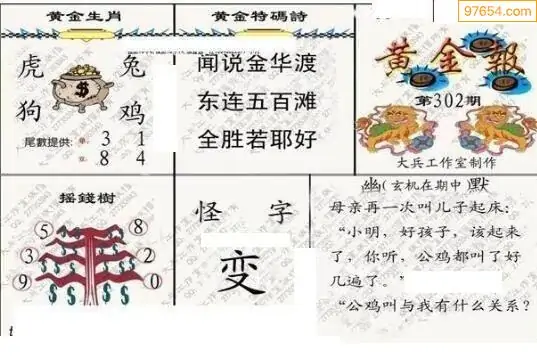 97654.com
黄金生肖
虎
兔
狗
鸡
$
尾數提供:
單:
3 1
8 4
黄金特碼詩
闻说金华渡
东连五百滩
全胜若耶好
黄金報
第302期
大兵工作室制作
摇錢樹
5
8
3
2
9
0
怪 字
变
幽(玄机在期中)默
母亲再一次叫儿子起床:
“小明,好孩子,该起来
了,你听,公鸡都叫了好
几遍了。”
“公鸡叫与我有什么关系?